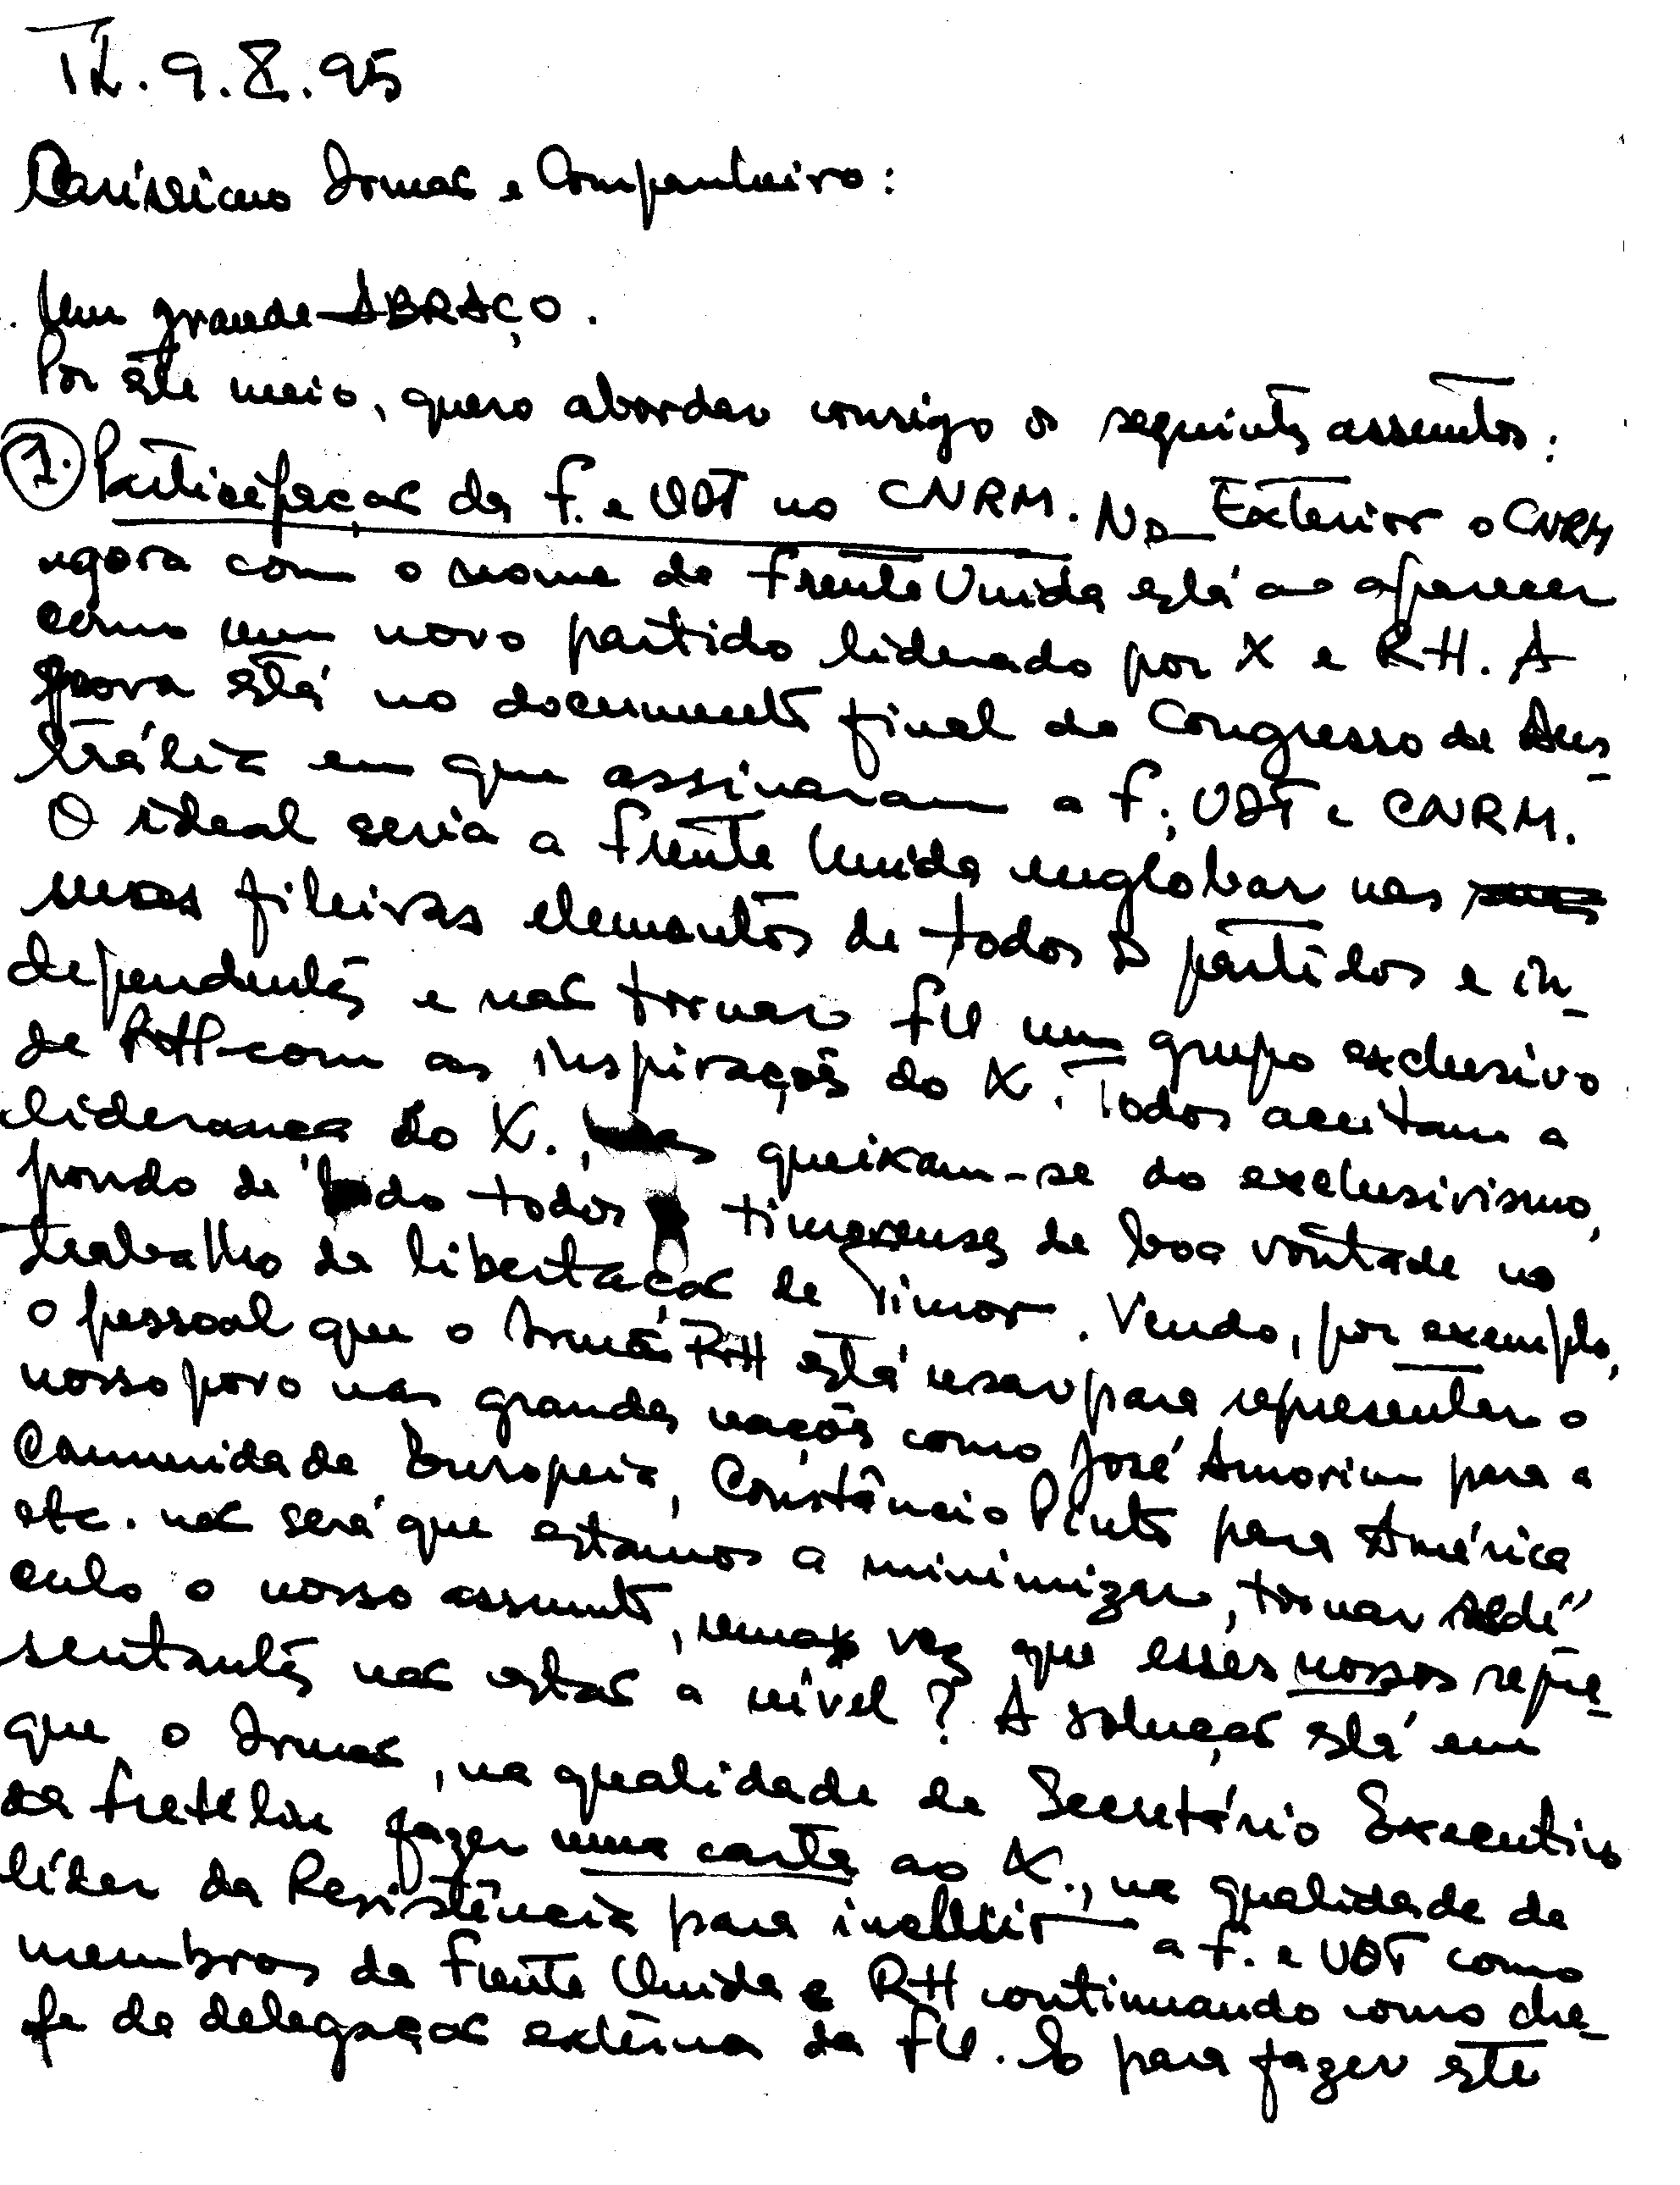 TL. 9.8.95
Caríssimo Irmão e Companheiro:
Um grande ABRAÇO.
Por este meio, quero abordar consigo os seguintes assuntos:
1. Participação da F. e UDT no CNRM. No Exterior o CNRM
agora com o nome de Frente Unida está a aparecer
como um novo partido liderado por X e RH. A
prova está no documento final do Congresso de Aus-
trália em que assinaram a F., UDT e CNRM.
O ideal seria a Frente Unida englobar nas
suas fileiras elementos de todos os partidos e in-
dependentes e não tornar FU um grupo exclusivo
de RH com as inspirações do X. Todos aceitam a
liderança do X., mas queixam-se do exclusivismo,
pondo de lado todos timorenses de boa vontade no
trabalho de libertação de Timor. Vendo, por exemplo,
o pessoal que o Irmão RH está usar para representar o
nosso povo nas grandes nações como José Amorim para a
Comunidade Europeia, Constâncio Pinto para América
etc. não será que estamos a minimizar, tornar redí-
culo o nosso assunto, uma vez que esses nossos repre-
sentantes não estão a nível? A solução está em
que o Irmão, na qualidade de Secretário Executivo
da Fretelin fazer uma carta ao X., na qualidade de
líder da Resistência para incluir a F. e UDT como
membros da Frente Unida e RH continuando como che-
fe da delegação externa da FU. Só para fazer este